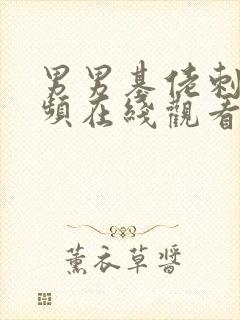 男男基佬刺
頻在綫觀看
薰衣草醬